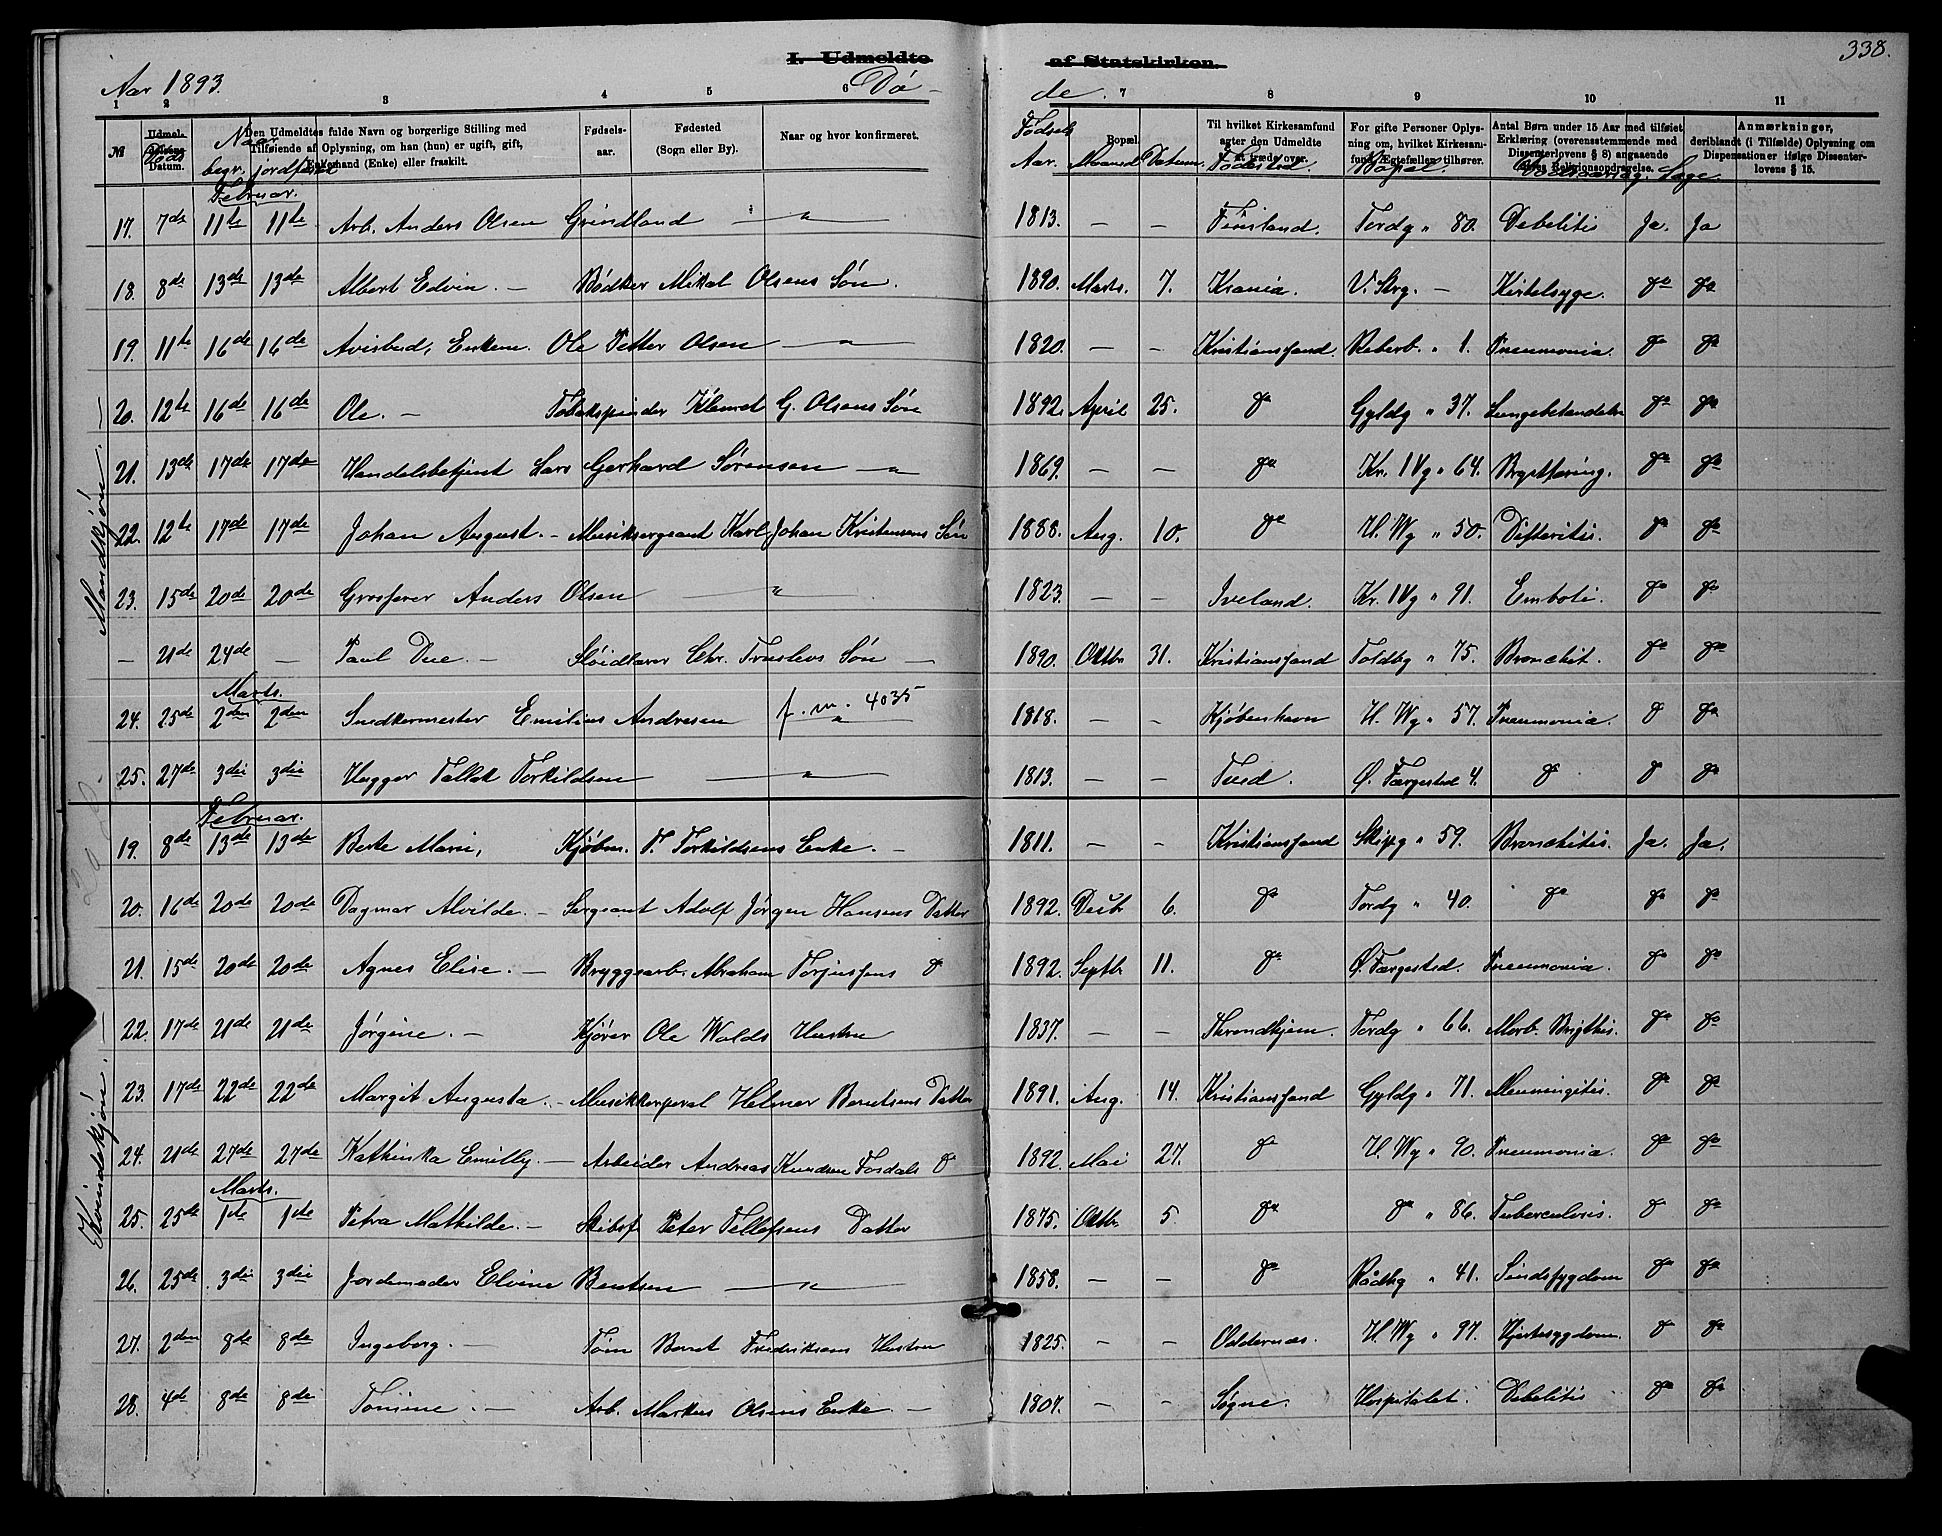 338.
I. Udmeldte af Statskirken.
Aar 1893. Dö- de.
1 2 3 4 5 6 7 8 9 10 11
№ Udmeldelsens Datum. Den Udmeldtes fulde Navn og borgerlige Stilling med Tilføiende af Oplysning, om han (hun) er ugift, gift, Enkemand (Enke) eller fraskilt. Fødselsaar. Fødested (Sogn eller By). Naar og hvor konfirmeret. Bopæl. Til hvilket Kirkesamfund agter den Udmeldte at træde over. For gifte Personer Oplysning om, hvilket Kirkesamfund Ægtefællen tilhører. Antal Børn under 15 Aar med tilføiet Erklæring (overensstemmende med Dissenterlovens § 8) angaaende deres Religionsopdragelse. Anmærkninger, deriblandt (i Tilfælde) Oplysning om Dispensationer ifølge Dissenterlovens § 15.
Döds Naar begr. jordfæstet Födsels Aar. Maaned Datum. Födested. Bopæl. Læge.
Mandkjön. —
Februar.
17. 7de 11te 11te Arb. Anders Olsen Grindland — " — 1813. — — Finsland. Tordg " 80. Debelitis Ja. Ja
18. 8de 13de 13de Albert Edvin. — Bødker Mikal Olsens Sön. 1890. Marts. 7. Krania. V. Strg. — Kirtelsyge. do do
19. 11te 16de 16de Avisbud, Enkem. Ole Petter Olsen — " — 1820. — — Kristianssand. Reberb. " 1. Pneumonia. do do
20. 12te 16de 16de Ole. — Tobakspinder Klemet G. Olsens Sön 1892. April 25. do Gyldg " 37. Lungebetændelse do do
21. 13de 17de 17de Handelsbetjent Lars Gerhard Sörensen — " 1869. — — do Kr. IVg " 64. Brysttæring. do do
22. 12te 17de 17de Johan August. — Musiksergeant Karl Johan Kristensens Sön 1888. Aug. 10. do H. Wg " 50. Difteritis. do do
23. 15de 20de 20de Grosserer Anders Olsen — " — 1823. — — Iveland. Kr. IVg " 91. Emboli. do do
— 21de 24de — Paul Due. — Slöidlærer Chr. Truslevs Sön — 1890. Oktbr 31. Kristianssand Toldbg " 75. Bronchit. do do
Marts.
24. 25de 2den 2den Snedkermester Emilius Andresen f. m. 4035 " 1818. — — Kjöbenhavn H. Wg " 57. Pneumonia. do do
25. 27de 3die 3die Hugger Tallak Torkildsen — " — 1813. — — Tved. Ø. Færgested 4. do do do
Kvindekjön. —
Februar.
19. 8de 13de 13de Berte Marie, Kjöbm. T. Torkildsens Enke. — 1811. — — Kristianssand Skipg " 59. Bronchitis. Ja. Ja.
20. 16de 20de 20de Dagmar Alvilde. — Sergeant Adolf Jörgen Hansens Datter 1892. Decbr 6. do Tordg " 40. do do do
21. 15de 20de 20de Agnes Elise. — Bryggearb. Abraham Torjussens do 1892. Septbr 11. do Ø. Færgested. Pneumonia. do do
22. 17de 21de 21de Jörgine. — Kjörer Ole Walds Hustru 1837. — — Throndhjem. Tordg " 66. Morb. Brigthis. do do
23. 17de 22de 22de Margit Augusta. — Musikkorporal Helmer Berntsens Datter 1891. Aug. 14. Kristianssand Gyldg " 71. Menningitis. do do
24. 21de 27de 27de Kathinka Emilly. — Arbeider Andreas Knudsen Fosdals do 1892. Mai 27. do H. Wg " 90. Pneumonia. do do
Marts.
25. 25de 1ste 1ste Petra Mathilde. — Skibsf Peter Tellefsens Datter 1875. Oktbr. 5 do do " 86. Tuberculosis. do do
26. 25de 3die 3die Jordemoder Elvine Bentsen — " — 1858. — — do Rådhg " 41. Sindssygdom do do
27. 2den 8de 8de Ingeborg. — Töm Bernt Fredriksens Hustru 1825. — — Oddernæs. H. Wg " 97. Hjertesygdom. do do
28. 4de 8de 8de Tomine. — Arb. Markus Olsens Enke. — 1807. — — Søgne. Hospitalet. Debelitis do do